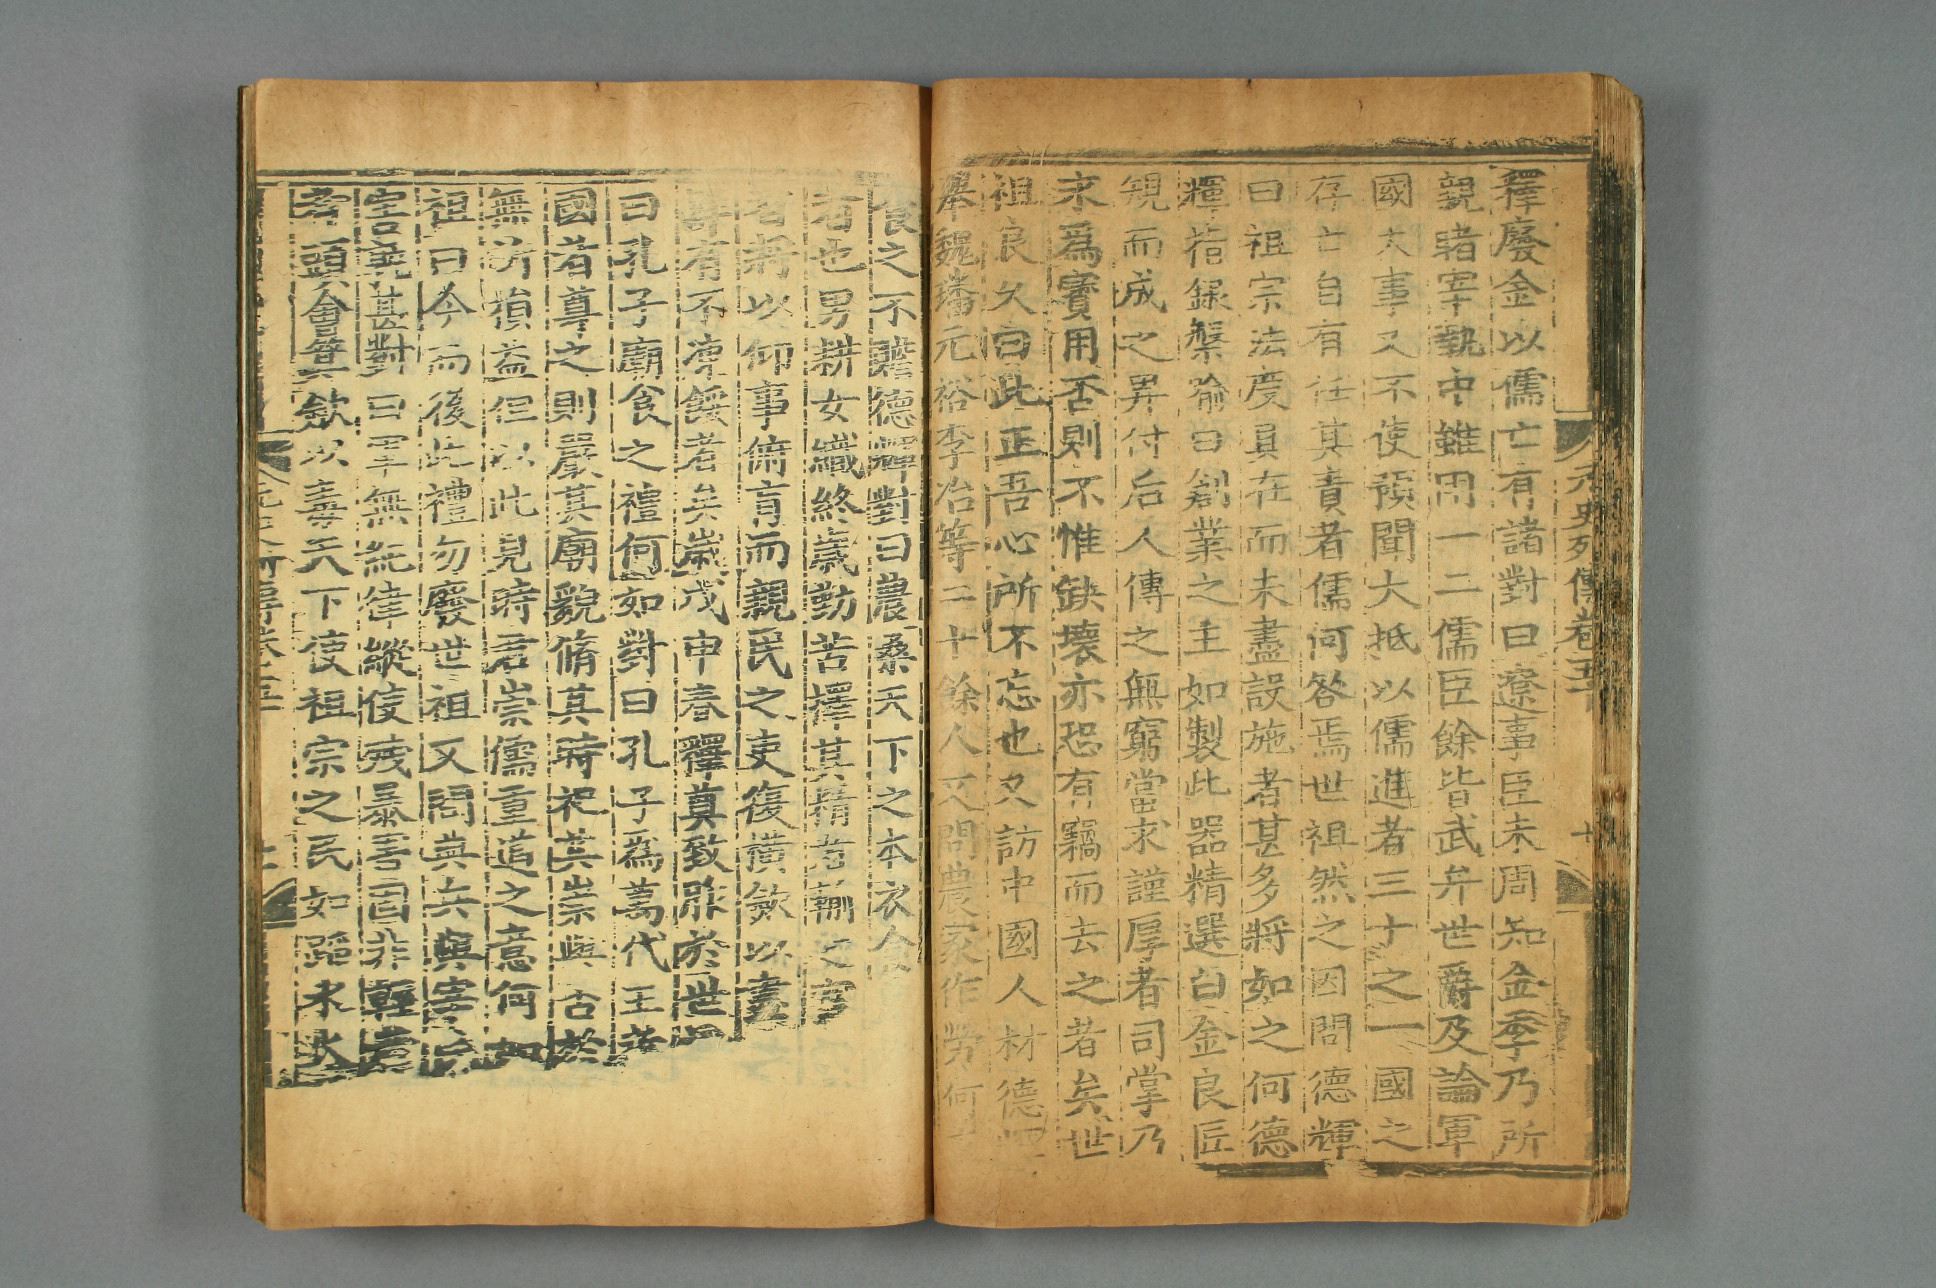 元史列傳卷五十
釋廢金以儒亡有諸對曰遼事臣未周知金季乃所
親睹宰執中雖用一二儒臣餘皆武弁世爵及論軍
國大事又不使預聞大抵以儒進者三十之一國之
存亡自有任其責者儒何咎焉世祖然之因問德輝
曰祖宗法度具在而未盡設施者甚多將如之何德
輝指銀槃喻曰創業之主如製此器精選白金良匠
規而成之畀付后人傳之無窮當求謹厚者司掌乃
永爲寶用否則不惟缺壞亦恐有竊而去之者矣世
祖良久曰此正吾心所不忘也又訪中國人材德輝
舉魏璠元裕李冶等二十餘人又問農家作勞何
食之不贍德輝對曰農桑天下之本衣食
者也男耕女織終歲勤苦擇其精者輸之官
者將以仰事俯育而親民之吏復橫斂以盡
有不凍餒者矣歲戊申春釋奠致胙於世祖
曰孔子廟食之禮何如對曰孔子爲萬代王者
國者尊之則嚴其廟貌脩其時祀其崇與否於
無所損益但以此見時君崇儒重道之意何如
祖曰今而後此禮勿廢世祖又問典兵與宰民
害孰甚對曰軍無紀律縱使殘暴害固非輕
頭會箕斂以毒天下使祖宗之民如蹈水火